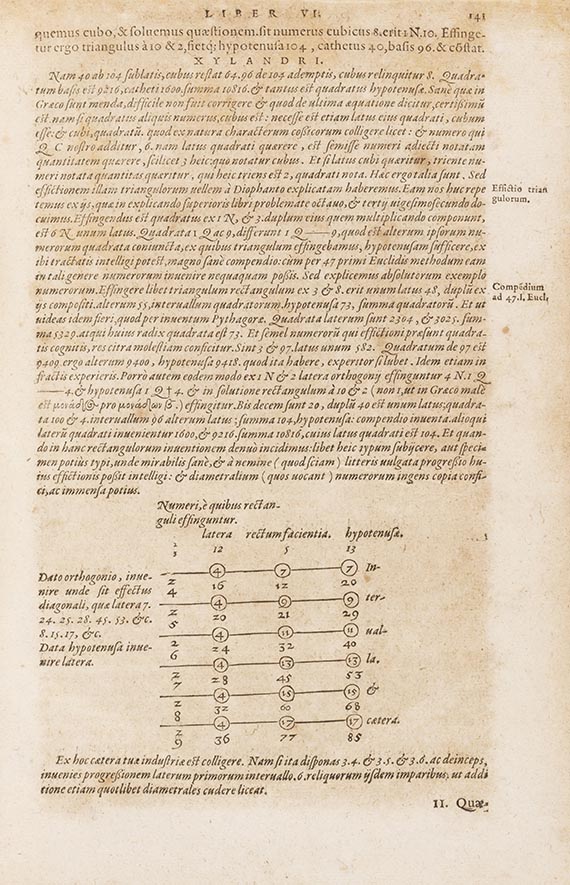 LIBER VI. 141
quemus cubo, & soluemus quæstionem. sit numerus cubicus 8. erit 1 N. 10. Effinge-
tur ergo triangulus à 10 & 2, fietq; hypotenusa 104, cathetus 40, basis 96. & cōstat.
XYLANDRI.
Nam 40 ab 104 sublatis, cubus restat 64. 96 de 104 ademptis, cubus relinquitur 8. Quadra-
tum basis est 9216, catheti 1600. summa 10816. & tantus est quadratus hypotenusæ. Sanè quæ in
Græco sunt menda, difficile non fuit corrigere & quod de ultima æquatione dicitur, certissimū
est. nam si quadratus aliquis numerus, cubus est: necesse est etiam latus eius quadrati, cubum
esse: & cubi, quadratū. quod ex natura characterum coßicorum colligere licet: & numero qui
Q C nostro additur, 6. nam latus quadrati quærere, est semisse numeri adiecti notatam
quantitatem quærere, scilicet 3 heic: quo notatur cubus. Et si latus cubi quæritur, triente nu-
meri notata quantitas quæritur, qui heic triens est 2, quadrati nota. Hæc ergo talia sunt. Sed
effictionem illam triangulorum uellem à Diophanto explicatam haberemus. Eam nos huc repe
temus ex ijs, quæ in explicando superioris libri problemate octauo, & tertij uigesimosecundo do-
cuimus. Effingendus est quadratus ex 1 N, & 3. duplum eius quem multiplicando componunt,
est 6 N unum latus. Quadrata 1 Q ac 9, differunt 1 Q — 9, quod est alterum ipsorum nu-
merorum quadrata coniuncta, ex quibus triangulum effingebamus, hypotenusam sufficere, ex
ibi tractatis intelligi potest, magno sanè compendio: cùm per 47 primi Euclidis methodum eam
in tali genere numerorum inuenire nequaquam poßis. Sed explicemus absolutorum exemplo
numerorum. Effingere libet triangulum rectangulum ex 3 & 8. erit unum latus 48, duplū ex
ijs compositi. alterum 55, interuallum quadratorum. hypotenusa 73, summa quadratorū. Et ut
uideas idem fieri, quod per inuentum Pythagoræ. Quadrata laterum sunt 2304, & 3025. sum-
ma 5329. atqui huius radix quadrata est 73. Et semel numerorū qui effictioni præsunt quadra-
tis cognitis, res citra molestiam conficitur. Sint 3 & 97. latus unum 582. Quadratum de 97 est
9409. ergo alterum 9400, hypotenusa 9418. quod ita habere, experitor si lubet. Idem etiam in
fractis experieris. Porrò autem eodem modo ex 1 N & 2 latera orthogonij effinguntur 4 N. 1 Q
— 4. & hypotenusa 1 Q † 4. & in solutione rectangulum à 10 & 2 (non 1, ut in Græco malè
est pro ) effingitur. Bis decem sunt 20, duplū 40 est unum latus: quadra-
ta 100 & 4. interuallum 96 alterum latus: summa 104, hypotenusa: compendio inuenta. alioqui
laterū quadrati inuenientur 1600, & 9216. summa 10816, cuius latus quadrati est 104. Et quan-
do in hanc rectangulorum inuentionem denuò incidimus: libet heic typum subijcere, aut speci-
men potiùs typi, unde mirabilis sanè, & à nemine (quod sciam) litteris uulgata progreßio hu-
ius effictionis poßit intelligi: & diametralium (quos uocant) numerorum ingens copia confi-
ci, ac immensa potius.
Effictio trian
gulorum.
Compēdium
ad 47. I. Eucl.
Numeri, è quibus rectan-
guli effinguntur.
latera rectum facientia. hypotenusæ.
2 3 12 5 13
4 7 7 In-
2 4 16 12 20
4 9 9 ter-
2 5 20 21 29
4 11 11 ual-
2 6 24 32 40
4 13 13 la.
2 7 28 45 53
4 15 15 &
2 8 32 60 68
4 17 17 cætera.
2 9 36 77 85
Dato orthogonio, inue-
nire unde sit effectus
diagonali, quæ latera 7.
24. 25. 28. 45. 53. &c.
8. 15. 17, &c.
Data hypotenusa inue-
nire latera.
Ex hoc cætera tuæ industriæ est colligere. Nam si ita disponas 3. 4. & 3. 5. & 3. 6. ac deinceps,
inuenies progreßionem laterum primorum interuallo. 6. reliquorum ijsdem imparibus, ut addi
tione etiam quotlibet diametrales cudere liceat.
II. Quæ-